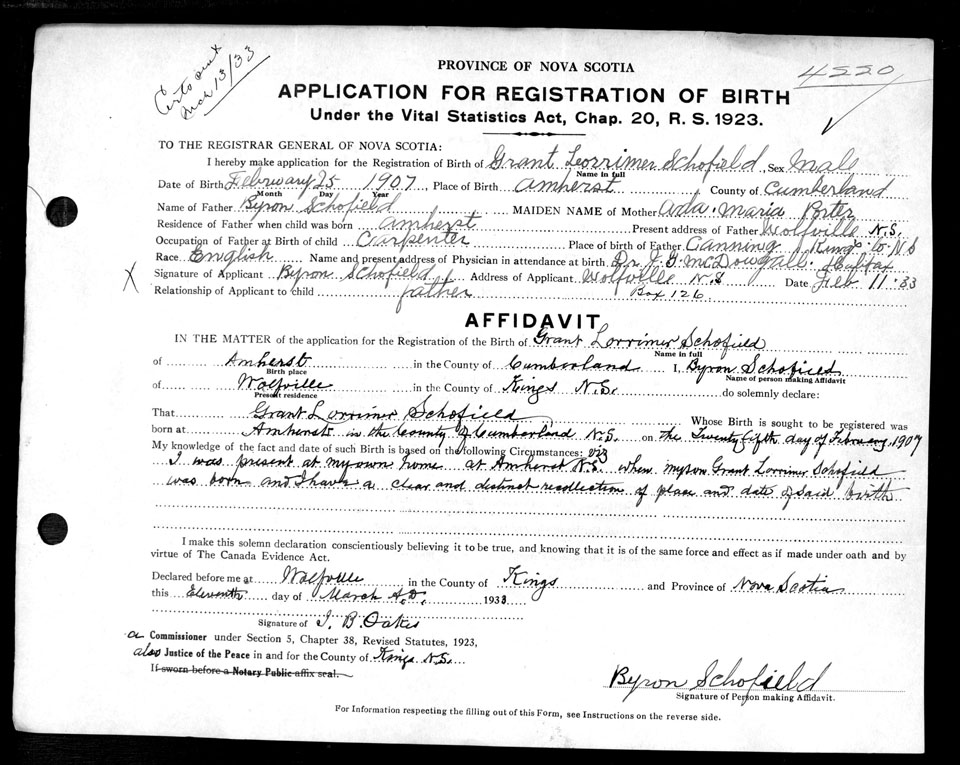 Certs sent
Mar 13/33
4220
PROVINCE OF NOVA SCOTIA
APPLICATION FOR REGISTRATION OF BIRTH
Under the Vital Statistics Act, Chap. 20, R. S. 1923.
TO THE REGISTRAR GENERAL OF NOVA SCOTIA:
I hereby make application for the Registration of Birth of Grant Lorrimer Schofield, Sex Male
Name in full
Date of Birth February 25 1907, Place of Birth Amherst County of Cumberland
Month Day Year
Name of Father Byron Schofield MAIDEN NAME of Mother Ada Maria Porter
Residence of Father when child was born Amherst Present address of Father Wolfville N.S.
Occupation of Father at Birth of child Carpenter Place of birth of Father Canning Kings Co N S
Race English Name and present address of Physician in attendance at birth Dr. J. G. McDougall. Halifax
X Signature of Applicant Byron Schofield Address of Applicant Wolfville N.S Date Feb 11. 33
Box 126
Relationship of Applicant to child father
AFFIDAVIT
IN THE MATTER of the application for the Registration of the Birth of Grant Lorrimer Schofield
Name in full
of Amherst in the County of Cumberland I, Byron Schofield
Birth place Name of person making Affidavit
of Wolfville in the County of Kings N.S. do solemnly declare:
Present residence
That Grant Lorrimer Schofield Whose Birth is sought to be registered was
born at Amherst in the County of Cumberland N.S. on the Twenty fifth day of February 1907
My knowledge of the fact and date of such Birth is based on the following Circumstances: viz
I was present at my own home at Amherst N.S. when my son Grant Lorrimer Schofield
was born and I have a clear and distinct recollection of place and date of said birth
I make this solemn declaration conscientiously believing it to be true, and knowing that it is of the same force and effect as if made under oath and by
virtue of The Canada Evidence Act.
Declared before me at Wolfville in the County of Kings and Province of Nova Scotia
this Eleventh day of March A.D. 1933
Signature of J. B. Oakes
a Commissioner under Section 5, Chapter 38, Revised Statutes, 1923,
also Justice of the Peace in and for the County of Kings N.S.
If sworn before a Notary Public affix seal.
Byron Schofield
Signature of Person making Affidavit.
For Information respecting the filling out of this Form, see Instructions on the reverse side.